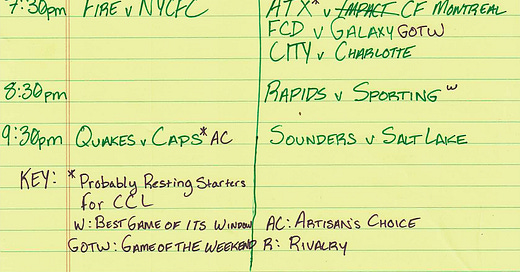 7:30pm FIRE v NYCFC ATX* v IMPACT CF MONTREAL
FCD v GALAXY GOTW
CITY v CHARLOTTE
8:30pm RAPIDS v SPORTING W
9:30pm QUAKES v CAPS* AC SOUNDERS v SALT LAKE
KEY: * Probably Resting Starters
for CCL
W: BEST GAME OF ITS WINDOW AC: ARTISAN'S CHOICE
GOTW: GAME OF THE WEEKEND R: RIVALRY